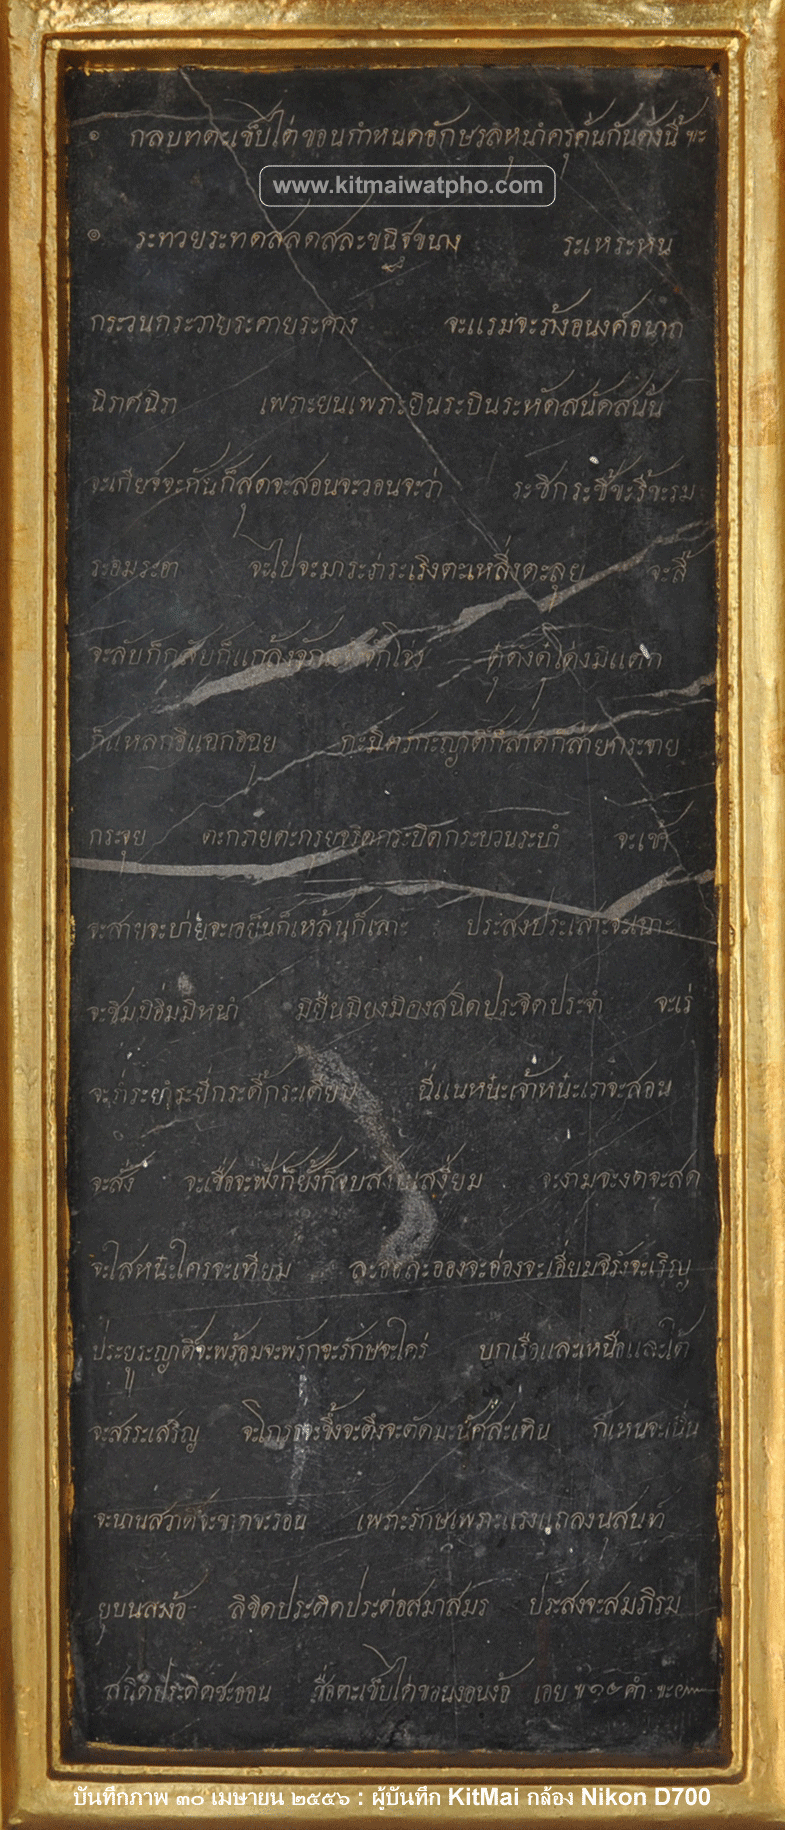 ๏ กลบทตะเข็บไต่ขอนกำหนดอักษรลหุนำครุคั่นกันดั่งนี้ ฯะ
www.kitmaiwatpho.com
๏ ระทวยระทดสลดสละขนิฐขนาง ระเหระหน
กระวนกระวายระคายระคาง จะแรมจะร้างอนงค์อนาถ
นิราศนิรา เพราะยนเพราะยินระบินระหัดสนัดสนั่น
จะเกียจ์จะกันก็สุดจะสอนจะวอนจะว่า ระซิกระซี้ขะรี้ขะรม
ระอมระอา จะไปจะมาระร่าระเริงตะเหลิ่งตะลุย จะลี้
จะลับก็กลับก็แกล้ง
ก็แหลกฉิแฉกฉิฉุย กะมิตร์กะญาติ์ก็สาดก็สายกระจาย
กระจุย ตะกรายตะกรุยจริตกระบิดกระบวนระบำ จะเช้า
จะสายจะบ่ายจะเอย็นก็เหล้นก็เลาะ ประสงประเสาะจะเฉาะ
จะชิมมิอิ่มมิหนำ มิยืนมิยงมิองสนิดประจิดประจำ จะเร่
จะร่ำระยำระยี่กระดี้กระเดียม นี่แนหน๋ะเจ้าหน๋ะเราจะสอน
จะสั่ง จะเชื่อจะฟังก็ยั้งก็จบสงบเสงี่ยม จะงามจะงดจะสด
จะใสหน๋ะใครจะเทียม ละออละอองจะอ่องจะเอี่ยมจิรังจะเริญ
ประยูระญาติ์จะพร้อมจะพรักจะรักษจะใคร่ บกเรือแลเหนือแลใต้
จะสรรเสริญ จะโกรธจะขึ้งจะดึงจะตัดมะนัศสะเทิน ก็เหนจะเนิ่น
จะนานสวาดิ์จะขาดจะรอน เพราะรักษเพราะแรงแถลงนุสนท์
ยุบนสง้อ ลิขิดประดิดประต่อสมาสมร ประสงจะสมภิรม
สนิดประดิดชะออน ชื่อตะเข็บไต่ขอนงอนง้อ เอย ฯ ๑๔ คำ ฯะ
บันทึกภาพ ๓๐ เมษายน ๒๕๕๖ : ผู้บันทึก KitMai กล้อง Nikon D700